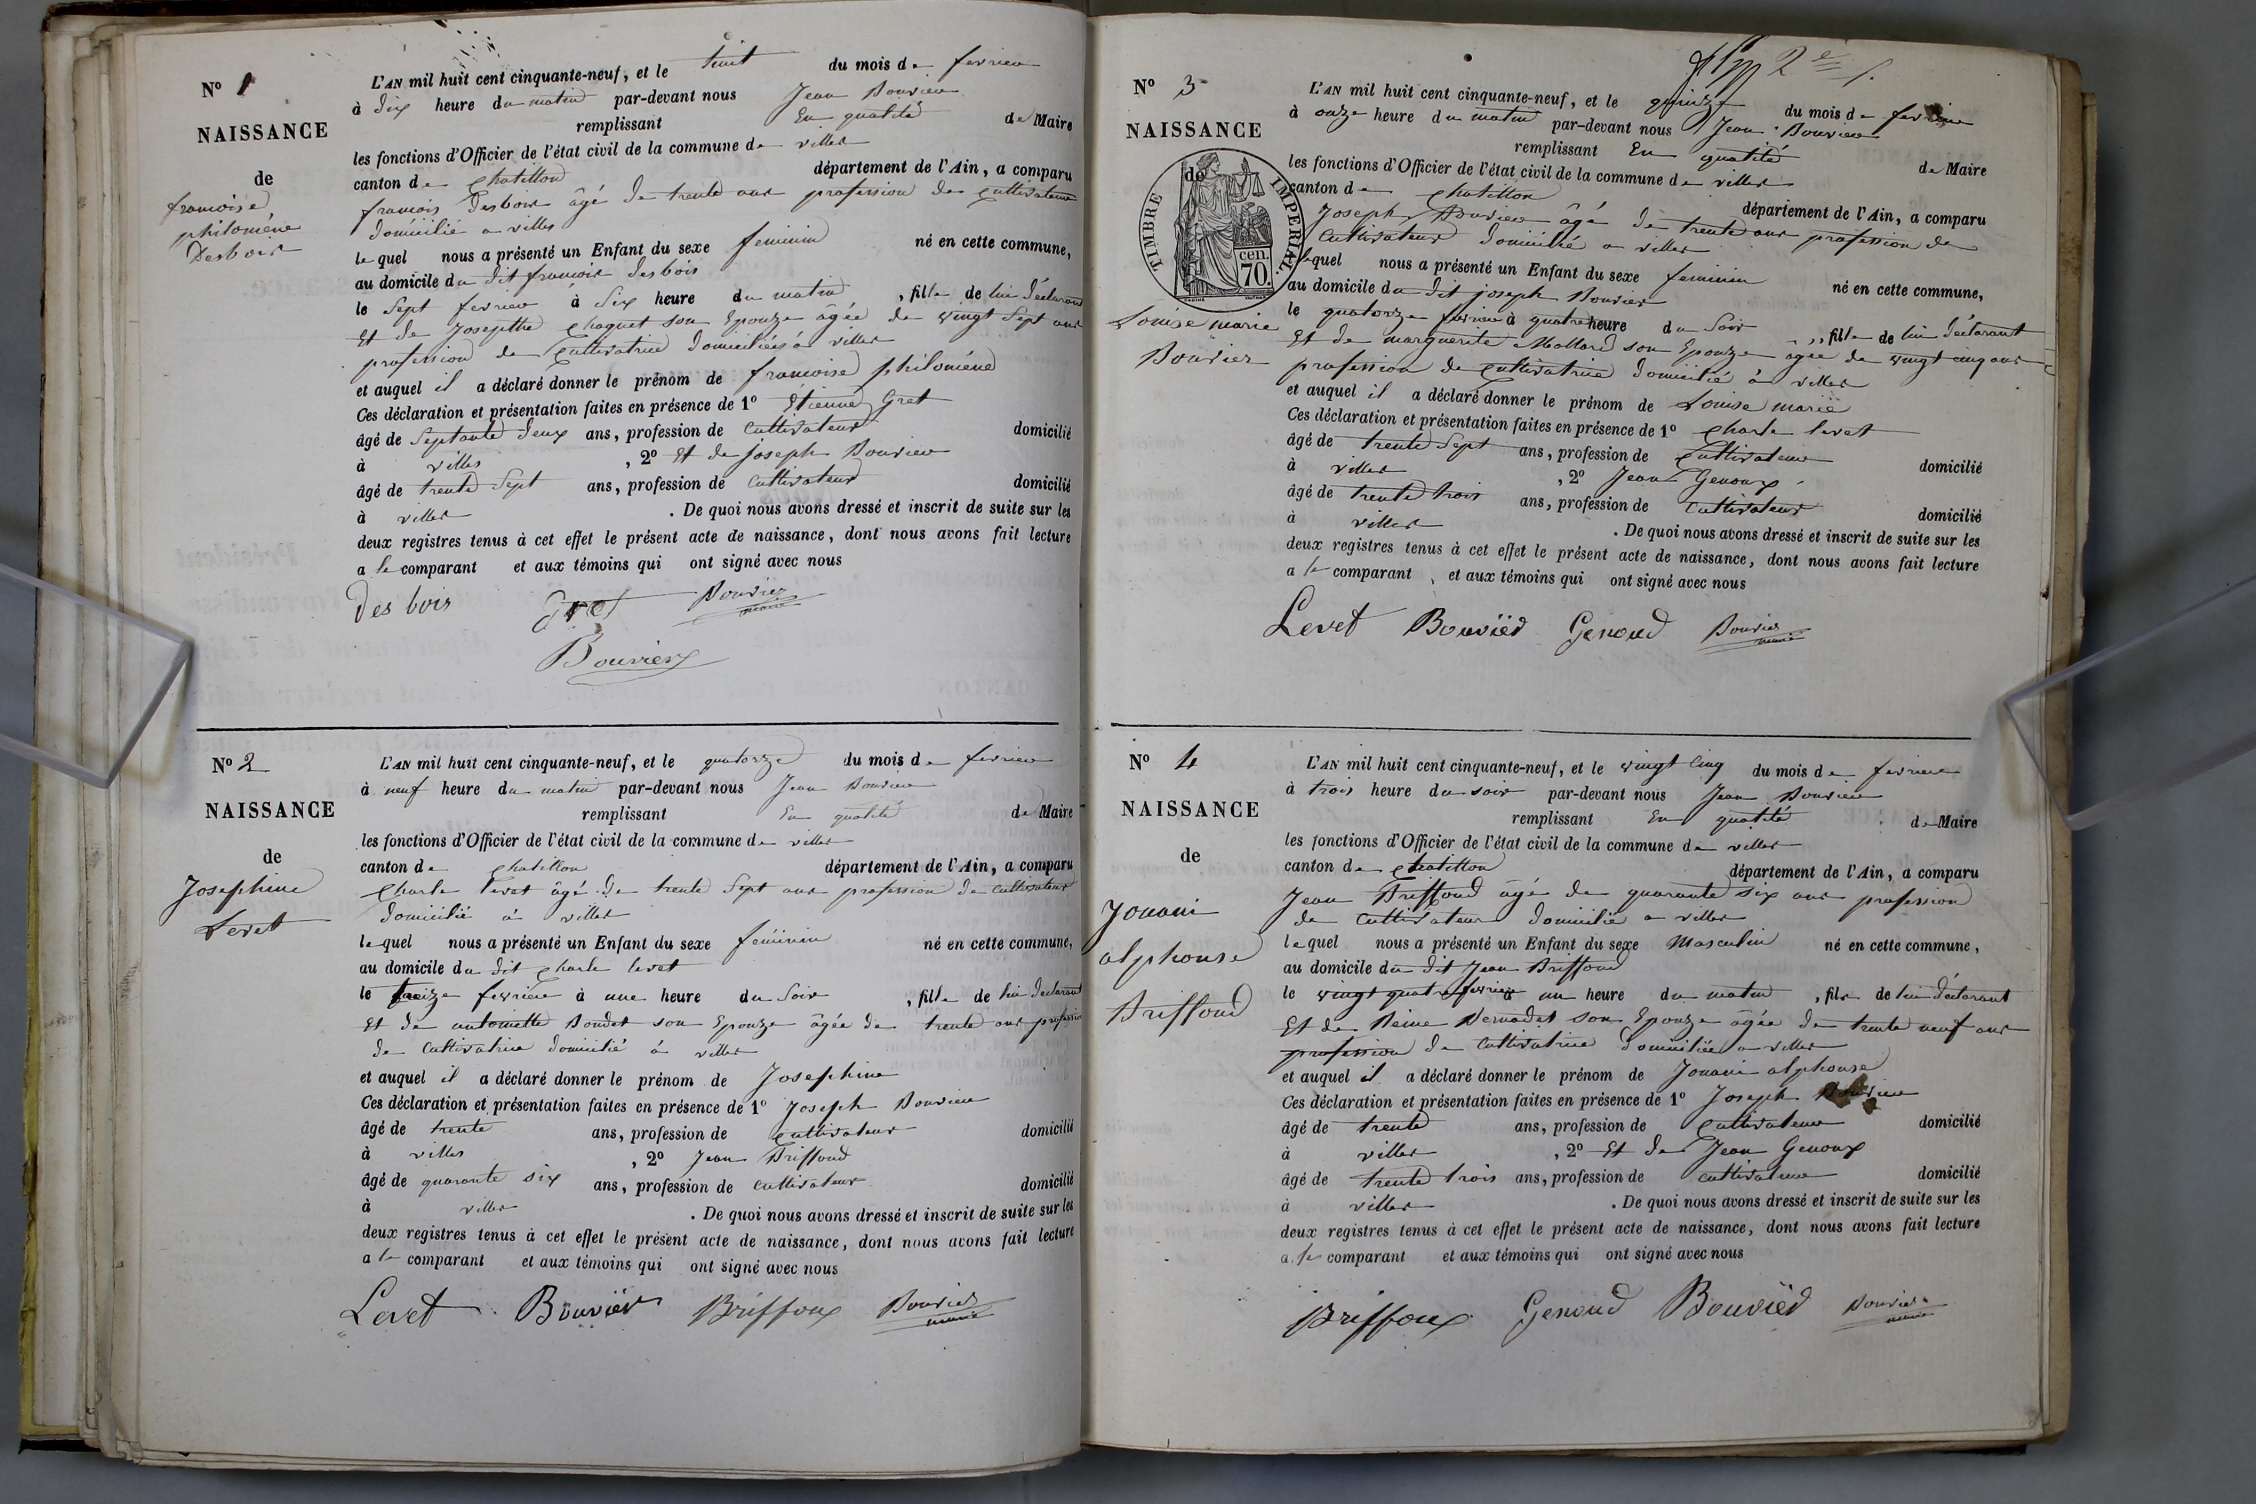 Nº 1
NAISSANCE
de
francoise
philoméne
Desbois
L'AN mil huit cent cinquante-neuf, et le huit du mois de fevrier
à dix heure du matin par-devant nous Jean Bouvier
remplissant En qualité de Maire
les fonctions d'Officier de l'état civil de la commune de villes
canton de Chatillon département de l'Ain, a comparu
francois Desbois âgé de trente ans profession de Cultivateur
domicilié a villes
lequel nous a présenté un Enfant du sexe feminin né en cette commune,
au domicile du dit francois desbois
le Sept fevrier à Six heure du matin, fille de lui déclarant
Et de Josepthe Choquet son Epouze âgée de vingt Sept ans
profession de Cultivatrice domiciliés à villes
et auquel il a déclaré donner le prénom de francoise philoméne
Ces déclaration et présentation faites en présence de 1º Étienne Gret
âgé de Septante deux ans, profession de Cultivateur domicilié
à villes, 2º Et de joseph Bouvier
âgé de trente Sept ans, profession de Cultivateur domicilié
à villes. De quoi nous avons dressé et inscrit de suite sur les
deux registres tenus à cet effet le présent acte de naissance, dont nous avons fait lecture
a le comparant et aux témoins qui ont signé avec nous
des bois Gret Bouvier maire
Bouvier
Nº 2
NAISSANCE
de
Josephine
Levet
L'AN mil huit cent cinquante-neuf, et le quatorze du mois de fevrier
à neuf heure du matin par-devant nous Jean Bouvier
remplissant En qualité de Maire
les fonctions d'Officier de l'état civil de la commune de villes
canton de Chatillon département de l'Ain, a comparu
Charle levet âgé de trente Sept ans profession de Cultivateur
domicilié à villes
lequel nous a présenté un Enfant du sexe feminin né en cette commune,
au domicile du dit Charle levet
le treize fevrier à une heure du Soir, fille de lui declarant
Et de antoinette Boudet son Epouze âgée de trente ans profession
de Cultivatrice domicilié à villes
et auquel il a déclaré donner le prénom de Josephine
Ces déclaration et présentation faites en présence de 1º Joseph Bouvier
âgé de trente ans, profession de Cultivateur domicilié
à villes, 2º Jean Briffoud
âgé de quarante six ans, profession de Cultivateur domicilié
à villes. De quoi nous avons dressé et inscrit de suite sur les
deux registres tenus à cet effet le présent acte de naissance, dont nous avons fait lecture
a le comparant et aux témoins qui ont signé avec nous
Levet Bouvier Briffoux Bouvier maire
2e
Nº 3
NAISSANCE
de
TIMBRE IMPERIAL
cen.
70.
Louise marie
Bouvier
L'AN mil huit cent cinquante-neuf, et le quinze du mois de fevrier
à onze heure du matin par-devant nous Jean Bouvier
remplissant En qualité de Maire
les fonctions d'Officier de l'état civil de la commune de villes
canton de Chatillon département de l'Ain, a comparu
Joseph Bouvier âgé de trente ans profession de
Cultivateur domicilié a villes
lequel nous a présenté un Enfant du sexe feminin né en cette commune,
au domicile du dit joseph Bouvier
le quatorze fevrier à quatre heure du Soir, fille de lui déclarant
Et de marguerite Mollard son Epouze âgée de vingt cinq ans
profession de Cultivatrice domicilié à villes
et auquel il a déclaré donner le prénom de Louise marie
Ces déclaration et présentation faites en présence de 1º Charle levet
âgé de trente Sept ans, profession de Cultivateur domicilié
à villes, 2º Jean Genoux
âgé de trente trois ans, profession de Cultivateur domicilié
à villes. De quoi nous avons dressé et inscrit de suite sur les
deux registres tenus à cet effet le présent acte de naissance, dont nous avons fait lecture
a le comparant et aux témoins qui ont signé avec nous
Levet Bouviëd Genoud Bouvier maire
Nº 4
NAISSANCE
de
Jouani
alphonse
Briffoud
L'AN mil huit cent cinquante-neuf, et le vingt Cinq du mois de fevrier
à trois heure du soir par-devant nous Jean Bouvier
remplissant En qualité de Maire
les fonctions d'Officier de l'état civil de la commune de villes
canton de Chatillon département de l'Ain, a comparu
Jean Briffoud âgé de quarante six ans profession
de Cultivateur domicilié a villes
lequel nous a présenté un Enfant du sexe Masculin né en cette commune,
au domicile du dit Jean Briffoud
le vingt quatre fevrier à un heure du matin, fils de lui déclarant
Et de Reine Bernadet son Epouze âgée de trente neuf ans
profession de Cultivatrice domiciliée a villes
et auquel il a déclaré donner le prénom de Jouani alphonse
Ces déclaration et présentation faites en présence de 1º Joseph Bouvier
âgé de trente ans, profession de Cultivateur domicilié
à villes, 2º Et de Jean Genoux
âgé de trente trois ans, profession de cultivateur domicilié
à villes. De quoi nous avons dressé et inscrit de suite sur les
deux registres tenus à cet effet le présent acte de naissance, dont nous avons fait lecture
a le comparant et aux témoins qui ont signé avec nous
Briffoux Genoud Bouviëd Bouvier maire